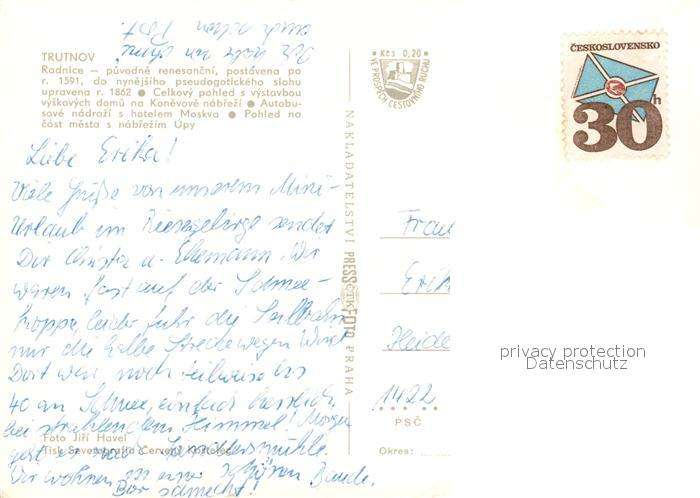 TRUTNOV
Radnice – původně renesanční, postavena po
r. 1591, do nynějšího pseudogotického slohu
upravena r. 1862 ● Celkový pohled s výstavbou
výškových domů na Koněvově nábřeží ● Autobu-
sové nádraží s hotelem Moskva ● Pohled na
část města s nábřežím Úpy
Liebe Erika!
Viele Grüße von unserem Mini-
Urlaub im Riesengebirge sendet
Dir Christa u. Ehemann. Wir
waren fast auf der Schnee-
koppe, leider fuhr die Seilbahn
nur die halbe Strecke wegen Wind.
Dort war noch teilweise bis
40 cm Schnee, einfach herrlich
bei strahlendem Himmel! Morgen
geht es nach
Wir wohnen in einer schönen Baude.
Foto Jiří Havel
Tisk Severografia Červený Kostelec
Kčs 0,20
VE PROSPĚCH CESTOVNÍHO RUCHU
NAKLADATELSTVÍ PRESSFOTO PRAHA
ČTK
ČESKOSLOVENSKO
30h
Frau
Erik
Heide
1422
PSČ
Okres:
privacy protection
Datenschutz